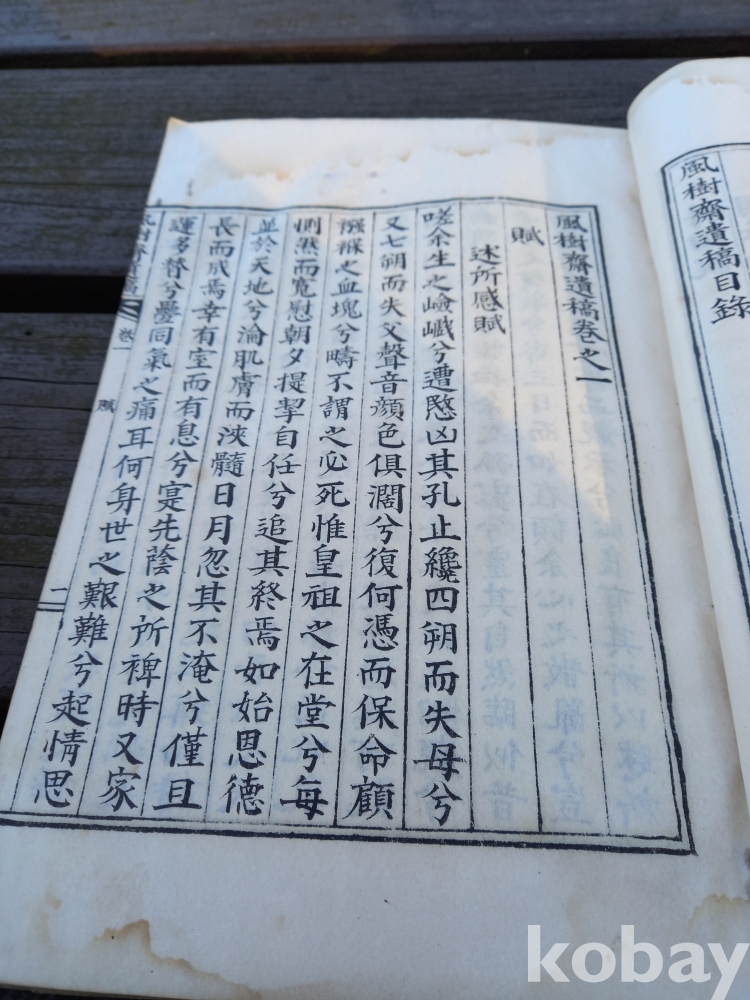 風樹齋遺稿目錄
風樹齋遺稿卷之一
賦
述所感賦
嗟余生之嶮巇兮遭愍凶其孔止纔四朔而失母兮
又七朔而失父聲音顔色俱濶兮復何憑而保命顧
襁褓之血塊兮疇不謂之必死惟皇祖之在堂兮每
惻然而寬慰朝夕提挈自任兮追其終焉如始恩德
並於天地兮淪肌膚而浹髓日月忽其不淹兮僅且
長而成焉幸有室而有息兮寔先蔭之所裨時又家
運多督兮疊同氣之痛耳何身世之艱難兮起情思
風樹齋遺稿 卷一 賦 一
kobay